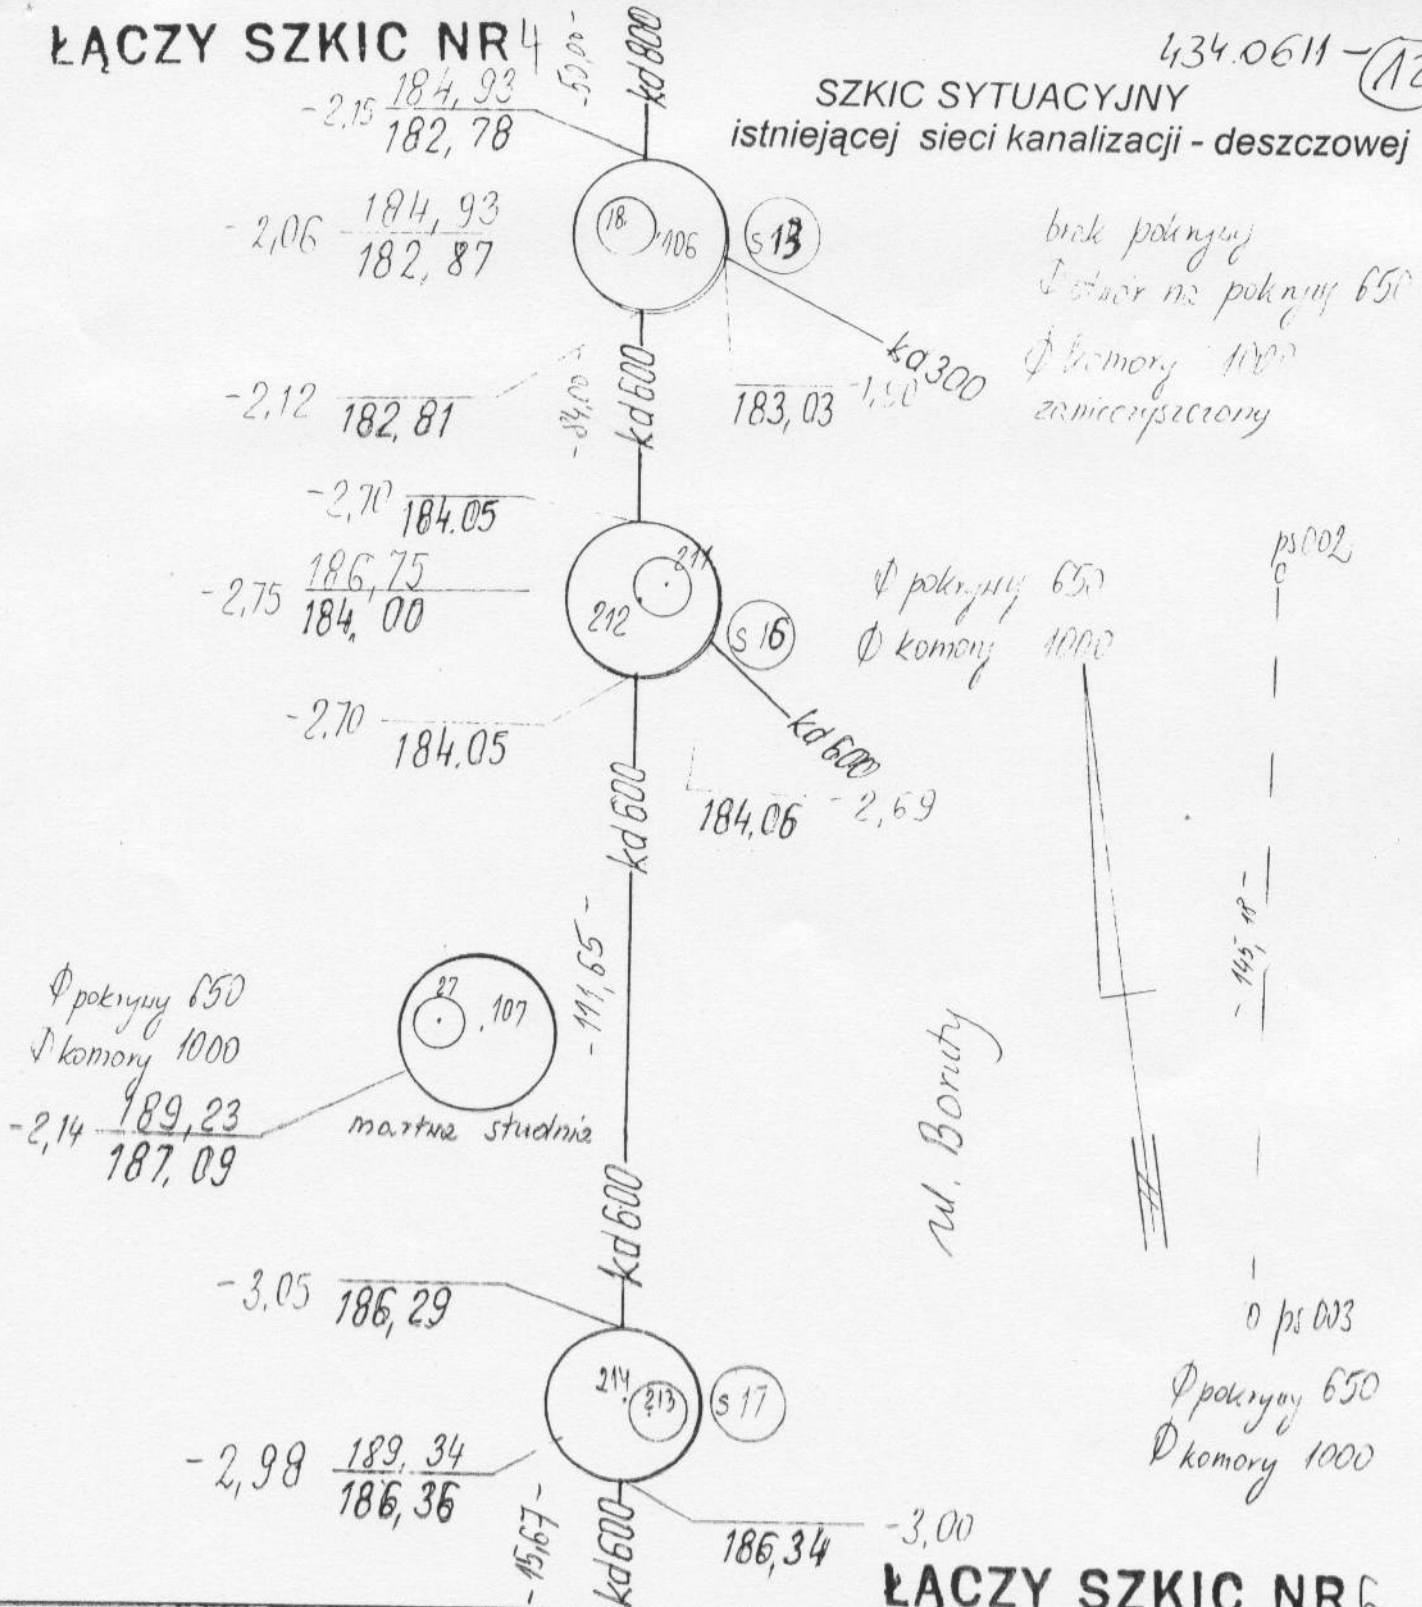 ŁĄCZY SZKIC NR 4
434.0611 - 12
SZKIC SYTUACYJNY
istniejącej sieci kanalizacji - deszczowej
-50,00-
kd800
-2,15 184,93
182,78
-2,06 184,93
182,87
18
106
s 13
brak pokrywy
Φ otwór na pokrywę 650
Φ komory 1000
zanieczyszczony
kd300
-2,12 182,81
-84,00-
kd600
183,03 -1,90
-2,70 184.05
-2,75 186,75
184,00
211
212
s 16
Φ pokrywy 650
Φ komory 1000
ps002
-2,70 184.05
kd600
kd600
184,06 -2,69
-145,18-
-111,65-
Φ pokrywy 650
Φ komory 1000
27
107
-2,14 189,23
187,09
martwa studnia
ul. Boruty
kd600
-3,05 186,29
ps003
214
213
s 17
Φ pokrywy 650
Φ komory 1000
-2,98 189,34
186,36
-15,67-
kd600
186,34 -3,00
ŁĄCZY SZKIC NR 6